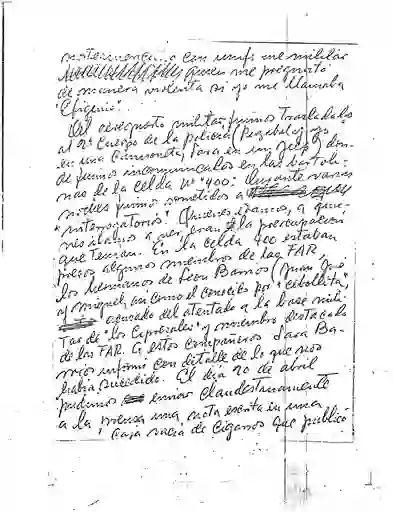 con unif me militar
quien me preguntó
de manera violenta si yo me llamaba
"Efigenio".
Del aeropuerto militar fuimos trasladados
al 2º Cuerpo de la policía (Regabal y yo
en una camioneta, Sara en un Jeep), don-
de fuimos incomunicados en las bartoli-
nas de la celda Nº 400; Durante varias
noches fuimos sometidos a
"interrogatorios". Quienes éramos, a quie-
nes íbamos a ver, eran la preocupación
que tenían. En la celda 400 estaban
presos algunos miembros de las FAR,
los hermanos de León Barrios (Juan José
y Miguel, así como el conocido por "Cebollita",
acusado del atentado a la base mili-
tar de "los Cipresales" y miembro destacado
de las FAR. A estos compañeros Sara Ba-
rrios informó con detalle de lo que nos
había sucedido. El día 20 de abril
pudimos enviar clandestinamente
a la prensa una nota escrita en una
caja vacía de cigarros que publicó